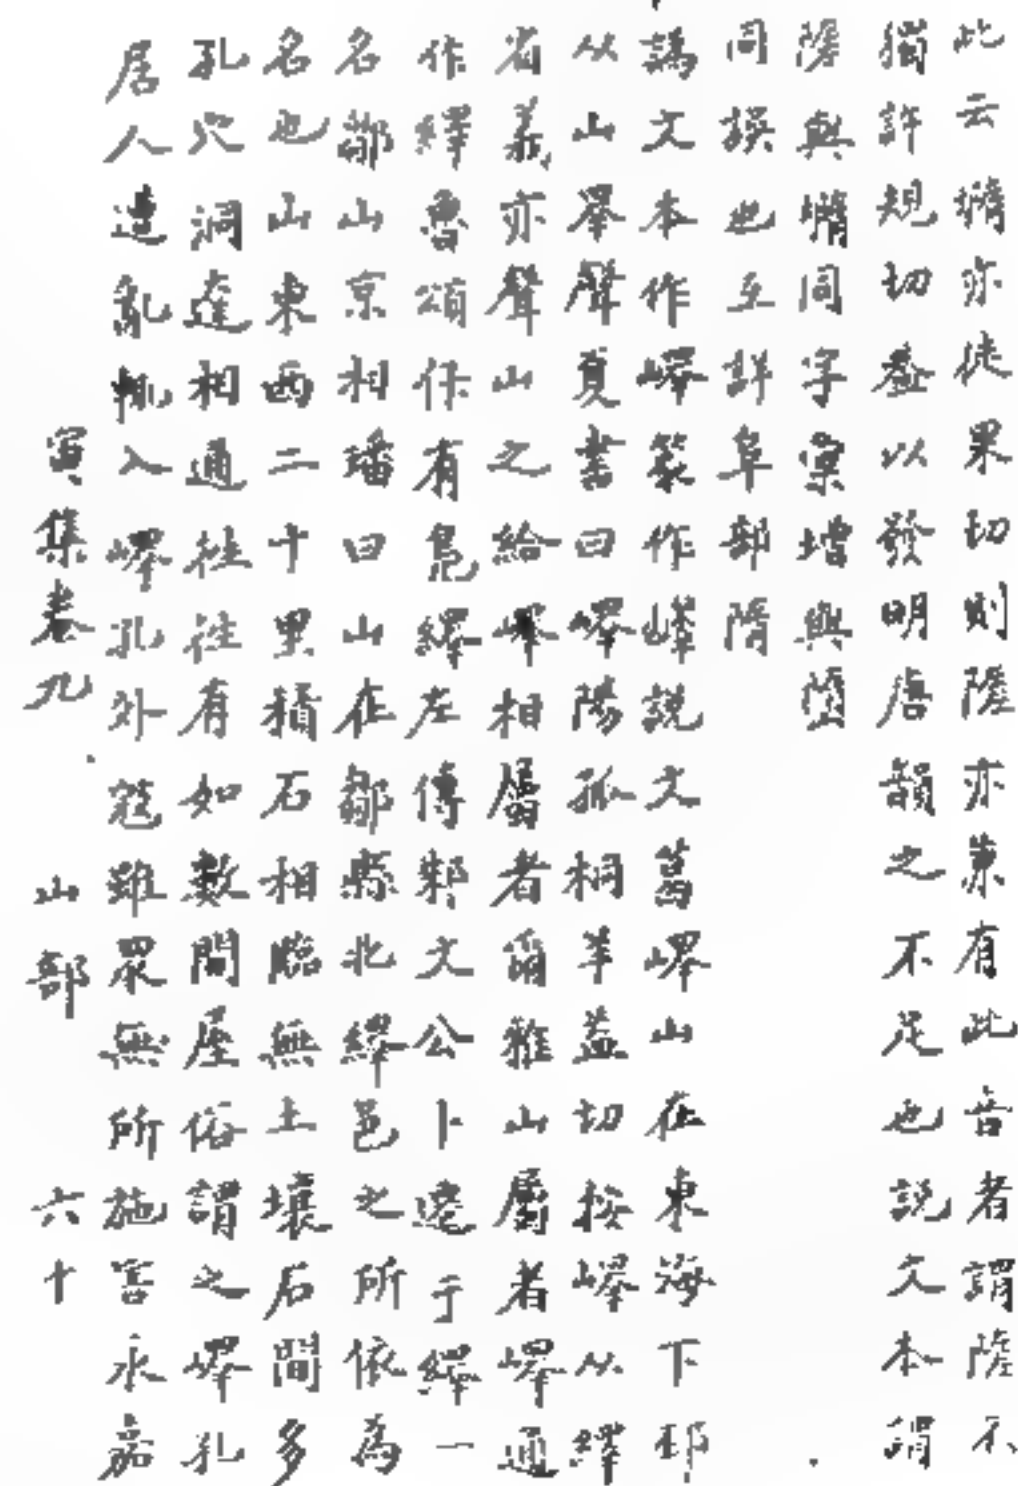 此云㩉亦徒果切則隓亦兼有此音者謂隓不
獨許規切葢以發明唐韻之不足也說文本
隓與㩉同字棄增與墮
同誤也互詳阜部隋
譌文本作嶧篆作嶧說文葛嶧山在東海下邳
从山睪聲夏書曰嶧陽孤桐羊益切按嶧从繹
省義亦聲山之給嶧相屬者爾雅山屬者嶧通
作繹魯頌保有鳧繹左傳邾文公卜遷于繹一
名鄒山京相璠曰山在鄒縣北繹邑之所依為
名也山東西二十里積石相臨無土壤石間多
孔穴洞達相通往往有如數間屋俗謂之嶧孔
居人遭亂輒入嶧孔外寇雖眾無所施害永嘉
寅集卷九 山部 六十